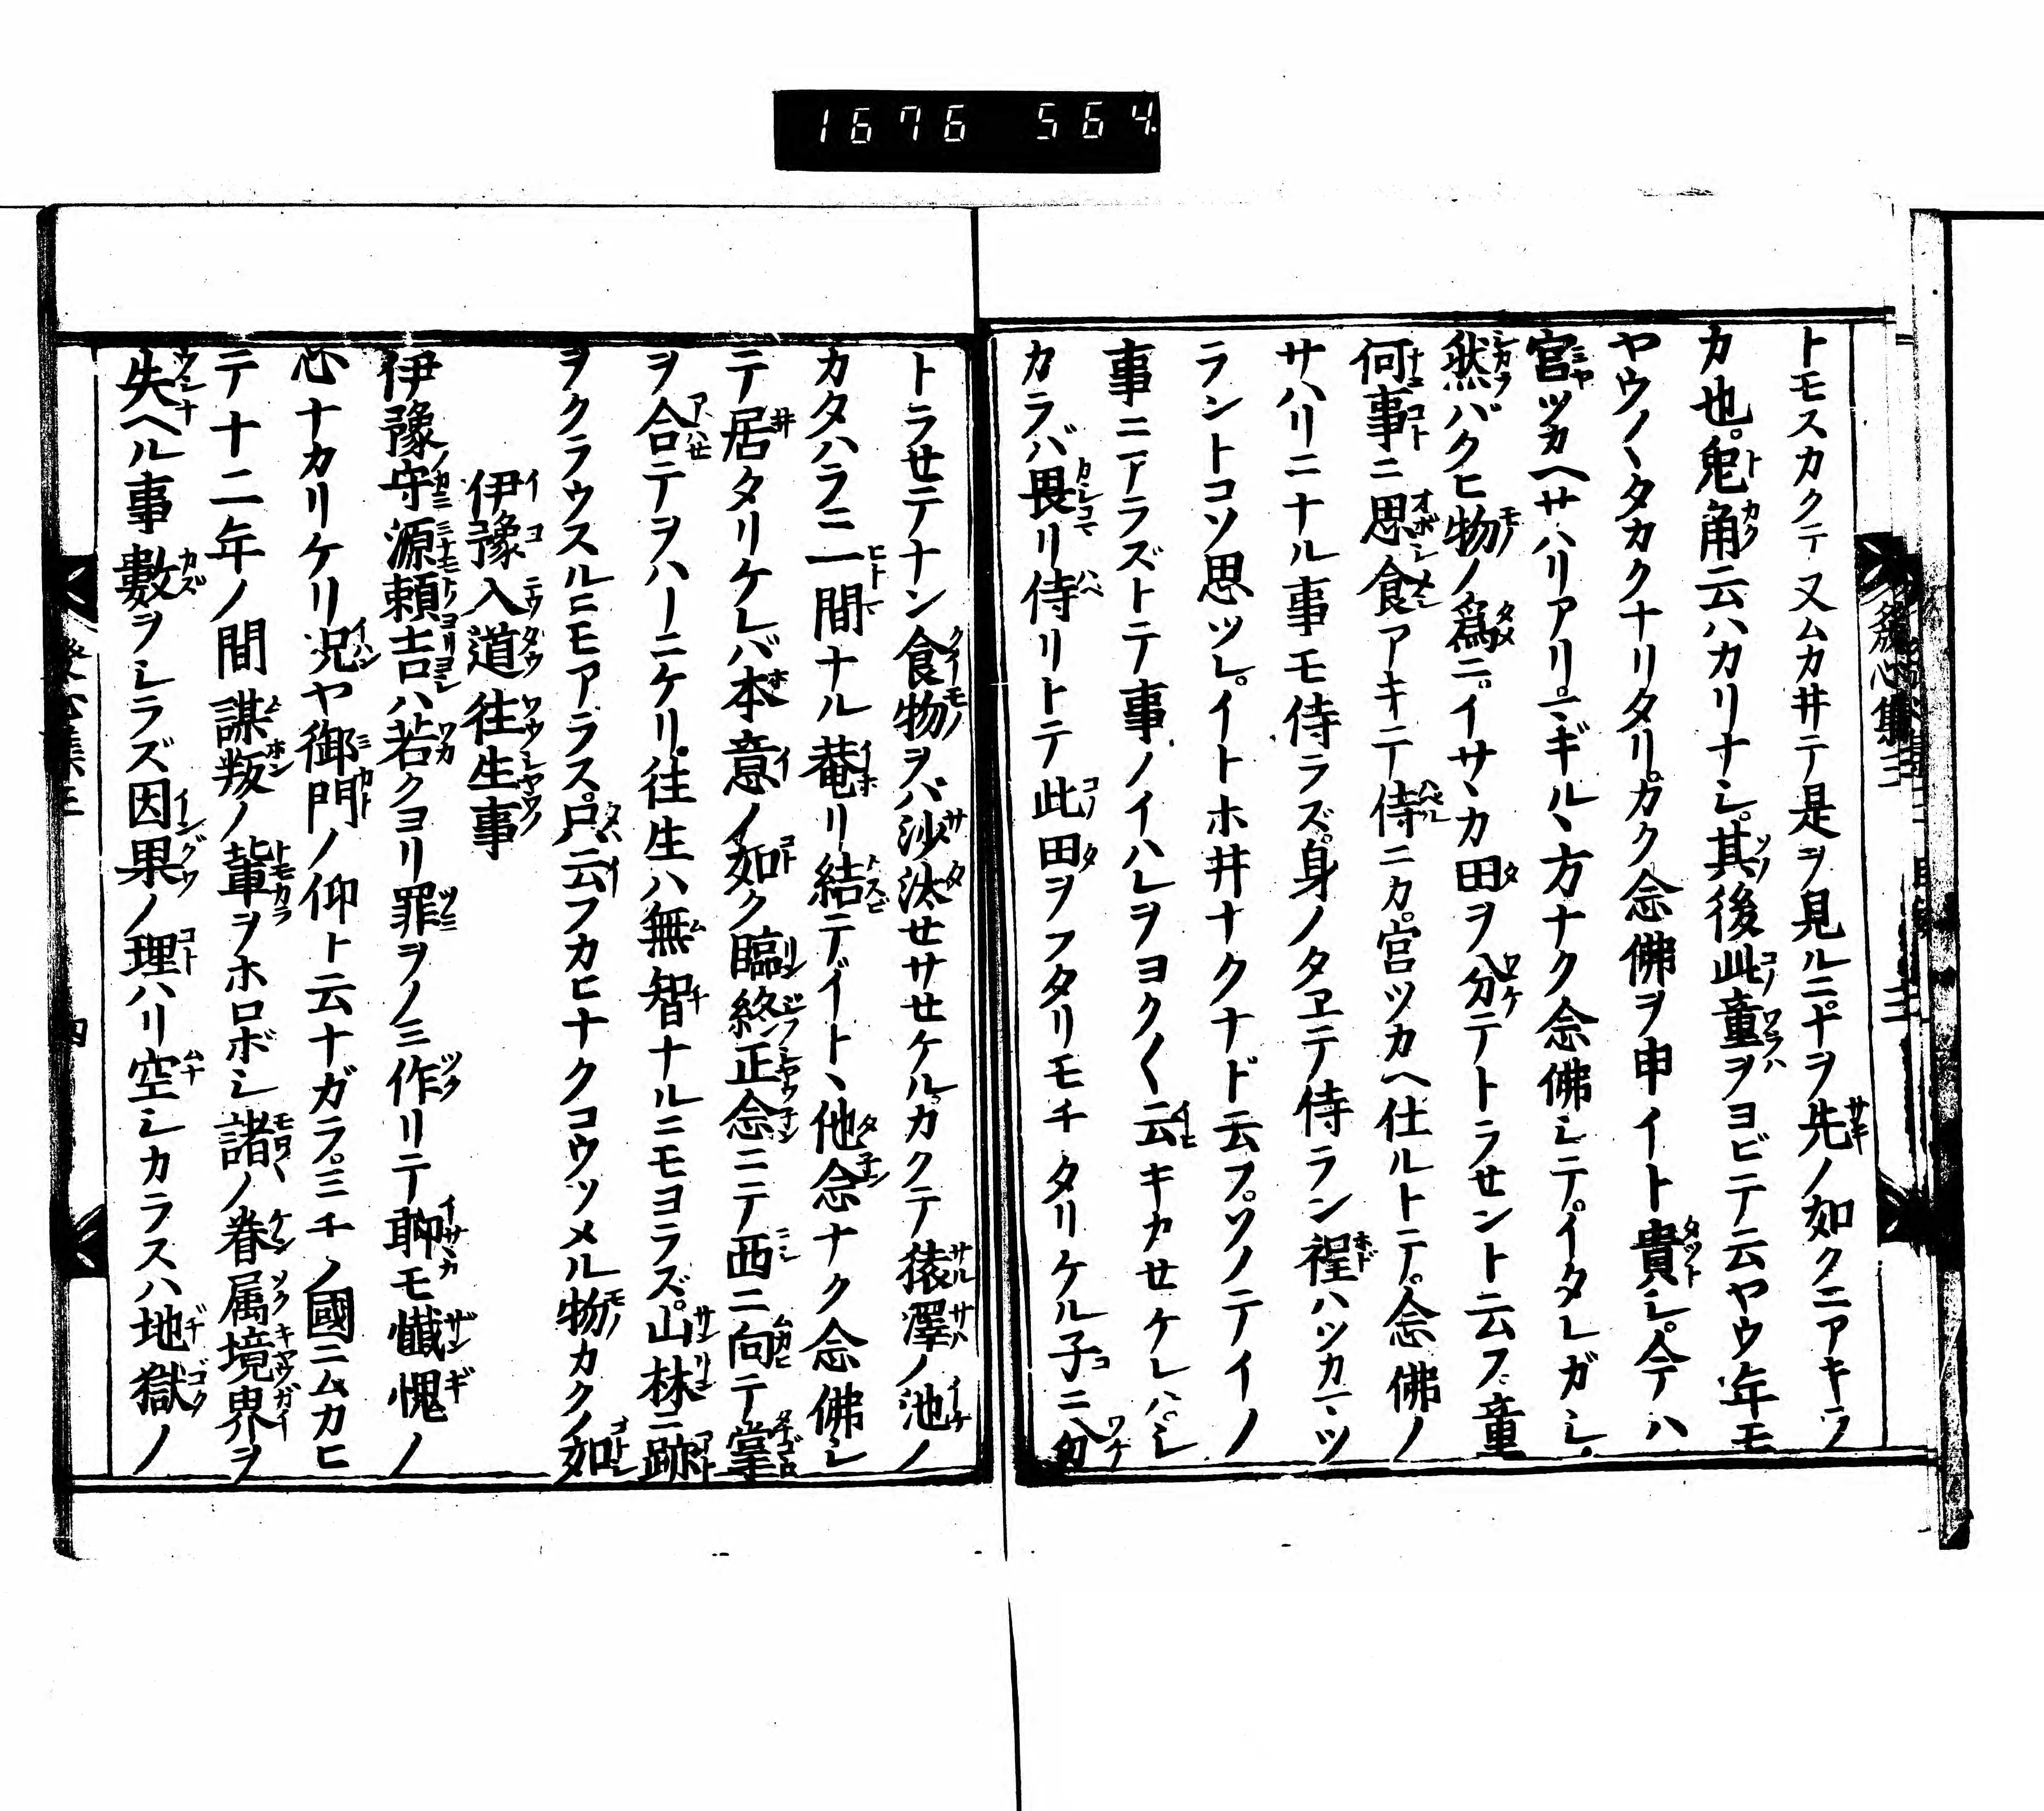 1676 564.
發心集三
トモスカクテ又ムカ井テ是ヲ見ルニ年ヲ先ノ如クニアキラ
カ也。兎角云ハカリナシ。其後此童ヲヨビテ云ヤウ年モ
ヤウ〳〵タカクナリタリ。カク念佛ヲ申イト貴シ。今ハ
宮ツカヘサハリアリ。マギルヽ方ナク念佛シテ。イタレガシ。
然バクヒ物ノ爲ニ。イサヽカ田ヲ分テトラセント云フ童
何事ニ思食アキニテ侍ニカ。宮ツカヘ仕ルトテ。念佛ノ
サハリニナル事モ侍ラズ。身ノタヱテ侍ラン程ハツカマツ
ラントコソ思ツレ。イトホ井ナクナド云フ。ソノテイノ
事ニアラズトテ事ノイハレヲヨク〳〵云キカセケレハ。シ
カラバ畏リ侍リトテ此田ヲフタリモチタリケル子ニ分
トラセテナン食物ヲバ沙汰セサセケルカクテ猿澤ノ池ノ
カタハラニ一間ナル菴リ結テイトヽ他念ナク念佛シ
テ居タリケレバ本意ノ如ク臨終正念ニテ西ニ向テ掌
ヲ合テヲハーニケリ。往生ハ無智ナルニモヨラズ。山林ニ跡
ヲクラウスルニモアラス。只云フカヒナクコウツメル物カクノ如
伊豫入道往生事
伊豫守源頼吉ハ若クヨリ罪ヲノミ作リテ聊モ懺愧ノ
心ナカリケリ況ヤ御門ノ仰ト云ナガラ。ミチノ國ニムカヒ
テ十二年ノ間謀叛ノ輩ヲホロボシ諸ノ眷属境界ヲ
失ヘル事數ヲシラズ因果ノ理ハリ空シカラスハ地獄ノ